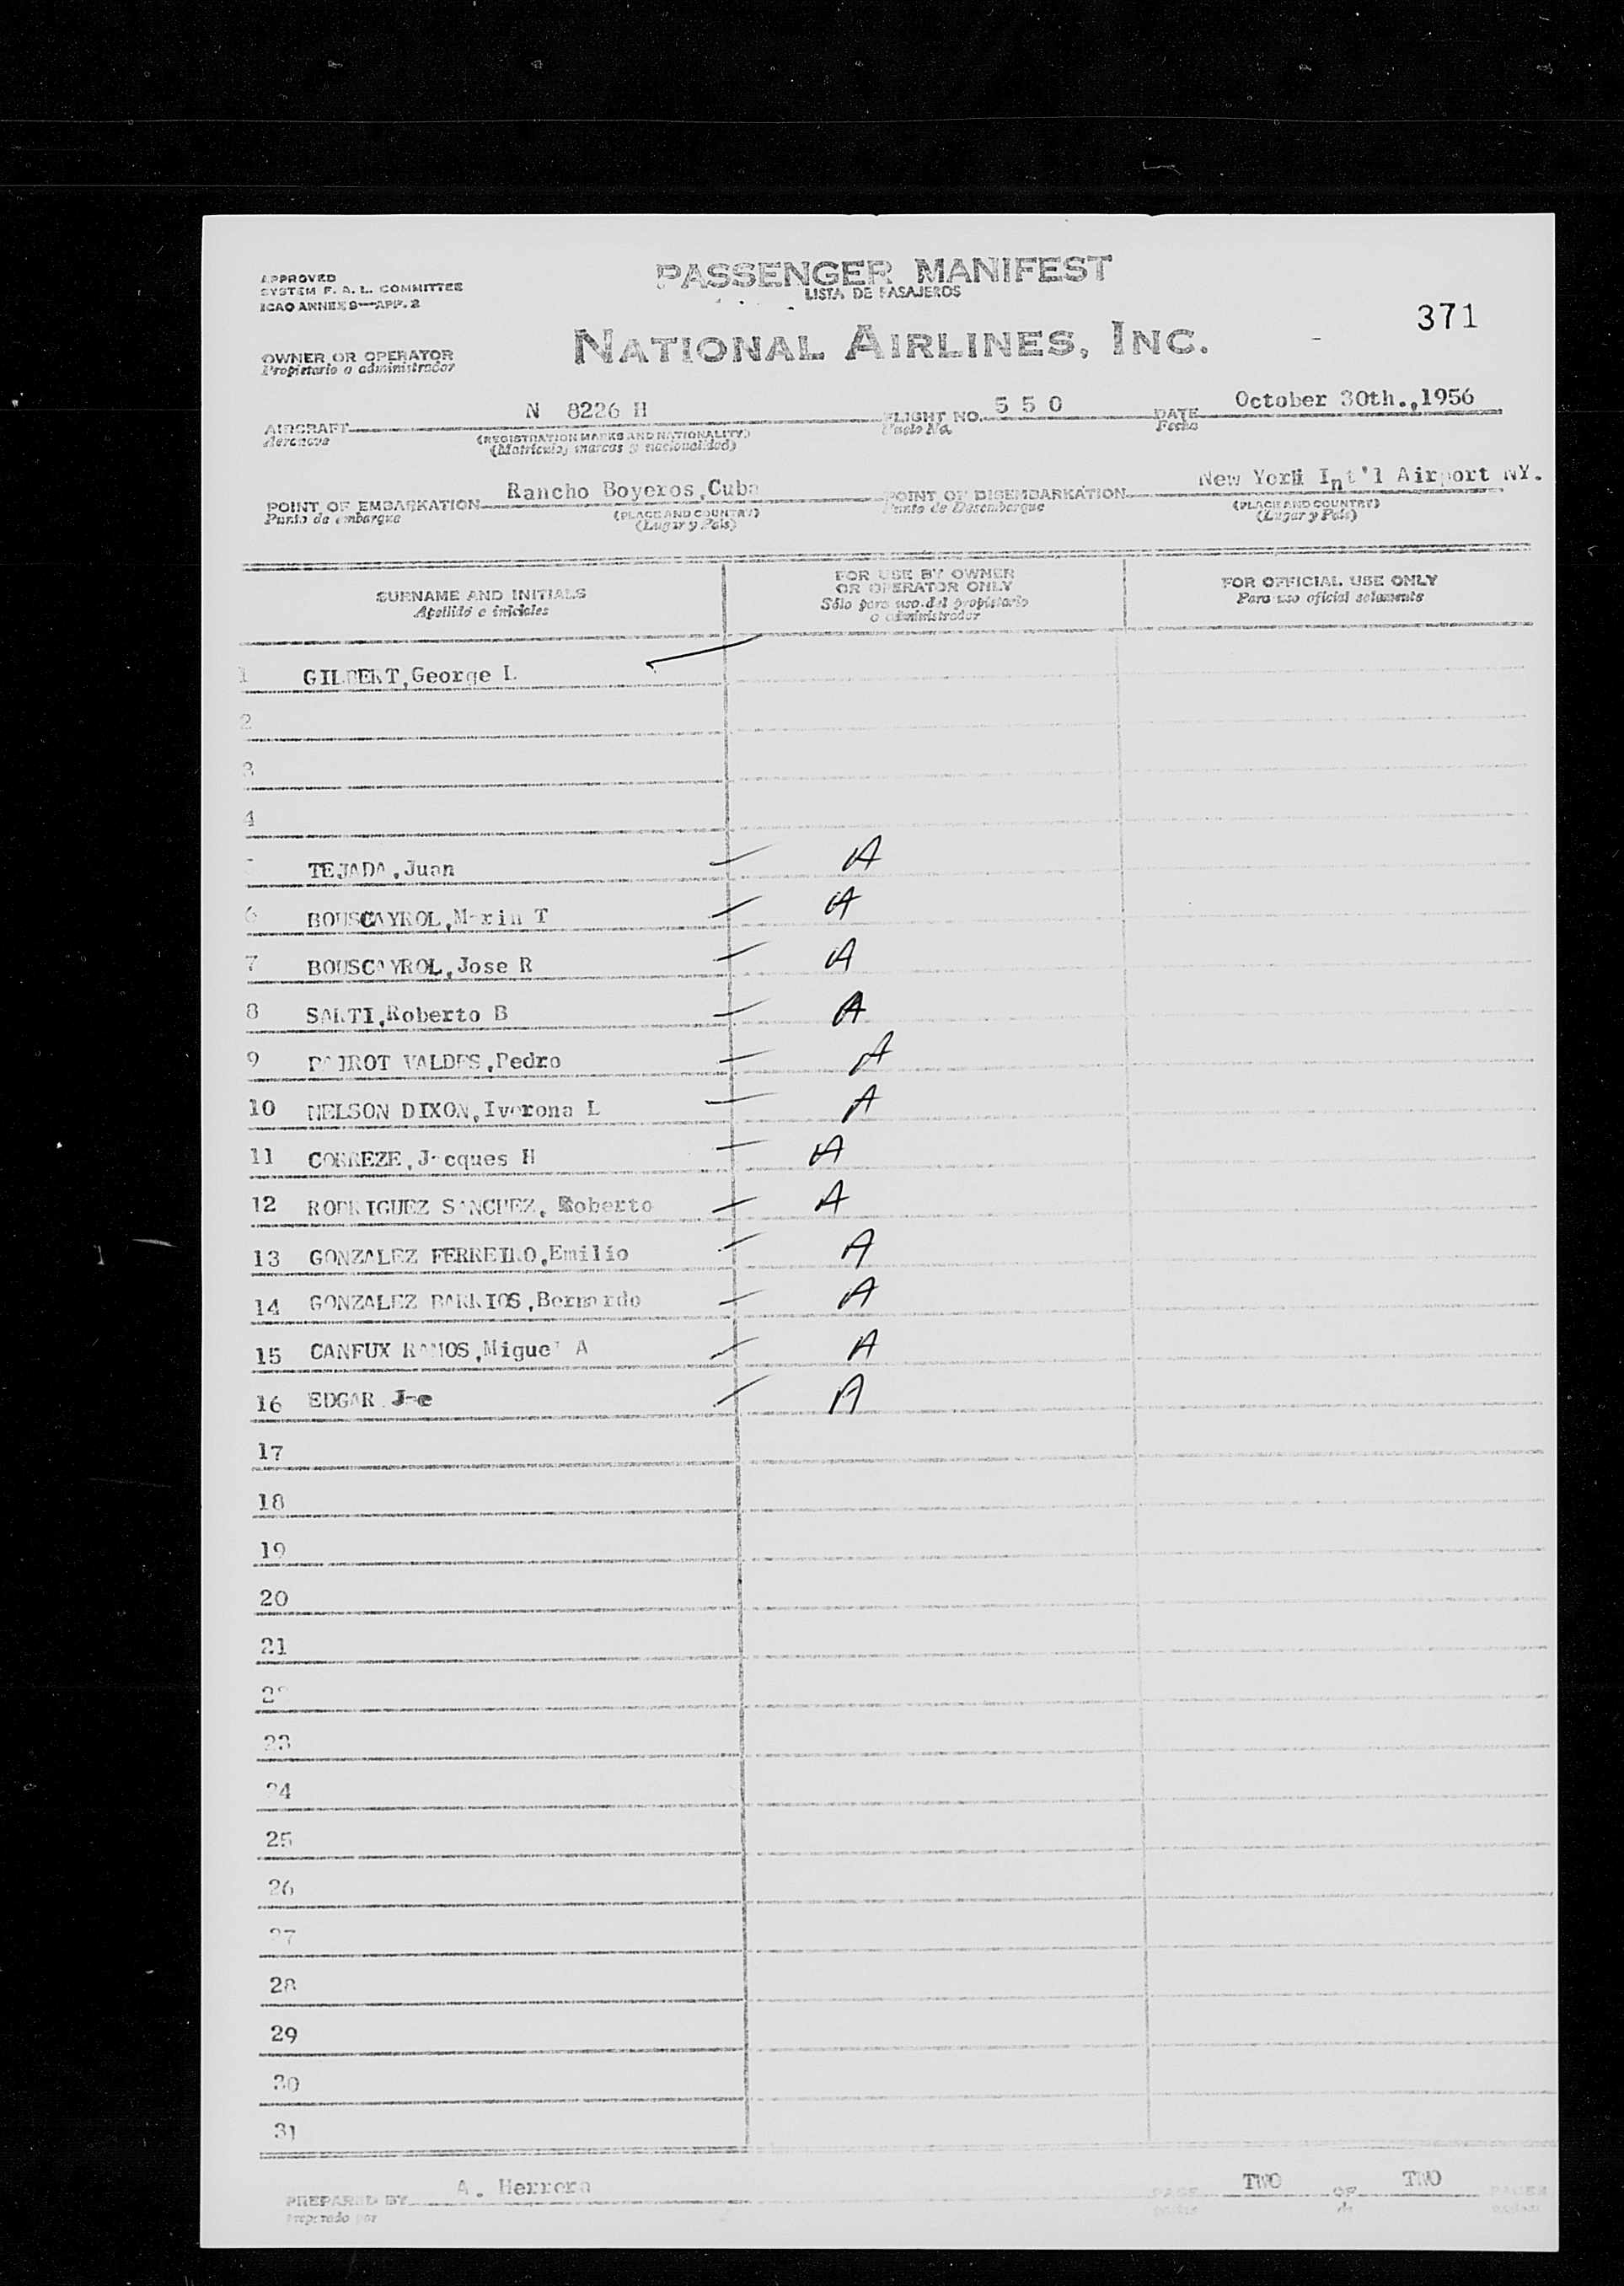 APPROVED
SYSTEM F. A. L. COMMITTEE
ICAO ANNEX 9—APP. 2
PASSENGER MANIFEST
LISTA DE PASAJEROS
371
OWNER OR OPERATOR
Propietario o administrador
NATIONAL AIRLINES, INC.
AIRCRAFT N 8226 H FLIGHT NO. 5 5 0 DATE October 30th.,1956
Aeronave (REGISTRATION MARKS AND NATIONALITY) Vuelo No. Fecha
(Matricula, marcas y nacionalidad)
POINT OF EMBARKATION Rancho Boyeros,Cuba POINT OF DISEMBARKATION New York Int'l Airport NY.
Punto de embarque (PLACE AND COUNTRY) Punto de Desembarque (PLACE AND COUNTRY)
(Lugar y Pais) (Lugar y Pais)
SURNAME AND INITIALS
Apellido e iniciales
FOR USE BY OWNER
OR OPERATOR ONLY
Sólo para uso del propietario
o administrador
FOR OFFICIAL USE ONLY
Para uso oficial solamente
1 GILBERT,George L
2
3
4
TEJADA,Juan A
6 BOUSCAYROL, T A
7 BOUSCAYROL,Jose R A
8 SARTI,Roberto B A
9 VALDES,Pedro A
10 NELSON DIXON,Iverona L A
11 CORREZE,Jacques H A
12 RODRIGUEZ SANCHEZ,Roberto A
13 GONZALEZ FERREIRO,Emilio A
14 GONZALEZ BARRIOS,Bernardo A
15 CANFUX RAMOS,Miguel A A
16 EDGAR A
17
18
19
20
21
22
23
24
25
26
27
28
29
30
31
PREPARED BY A. Herrera PAGE TWO OF TWO PAGES
Preparado por de